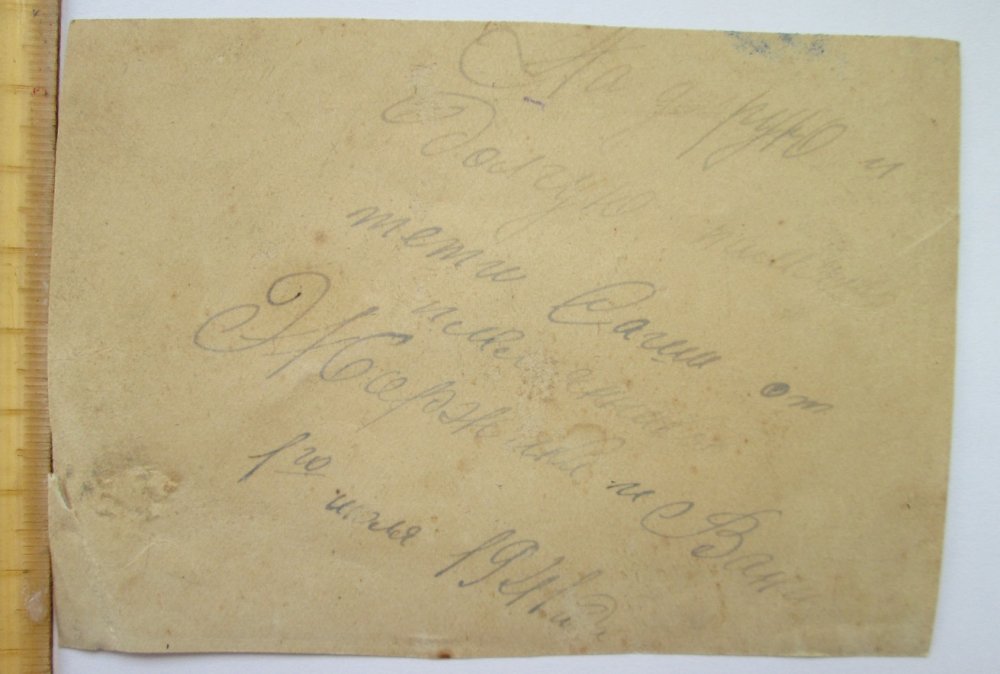 На добрую и
долгую память
тети Саши от
племенника
Жоржика и Вани
1го июля 1941г.